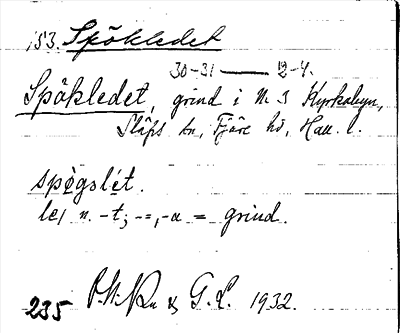 153. Spökledet
30-31 — 12-4.
Spökledet, grind i N. 3 Kyrkobyn,
Släps sn, Fjäre hd, Hall. l.
spø̀gslét.
le, n. -t; -=, -a = grind.
235 & G. L. 1932.